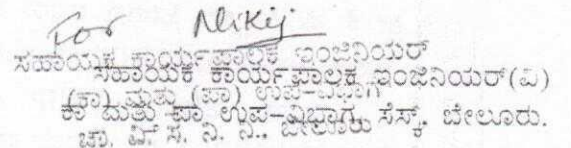 For
ಸಹಾಯಕ ಕಾರ್ಯಪಾಲಕ ಇಂಜಿನಿಯರ್
ಸಹಾಯಕ ಕಾರ್ಯಪಾಲಕ ಇಂಜಿನಿಯರ್(ವಿ)
(ಕಾ) ಮತ್ತು (ಪಾ) ಉಪ-ವಿಭಾಗ
ಕಾ ಮತ್ತು ಪಾ ಉಪ-ವಿಭಾಗ, ಸೆಸ್ಕ್, ಬೇಲೂರು.
ಚಾ. ವಿ. ಸ. ನಿ. ನಿ., ಬೇಲೂರು